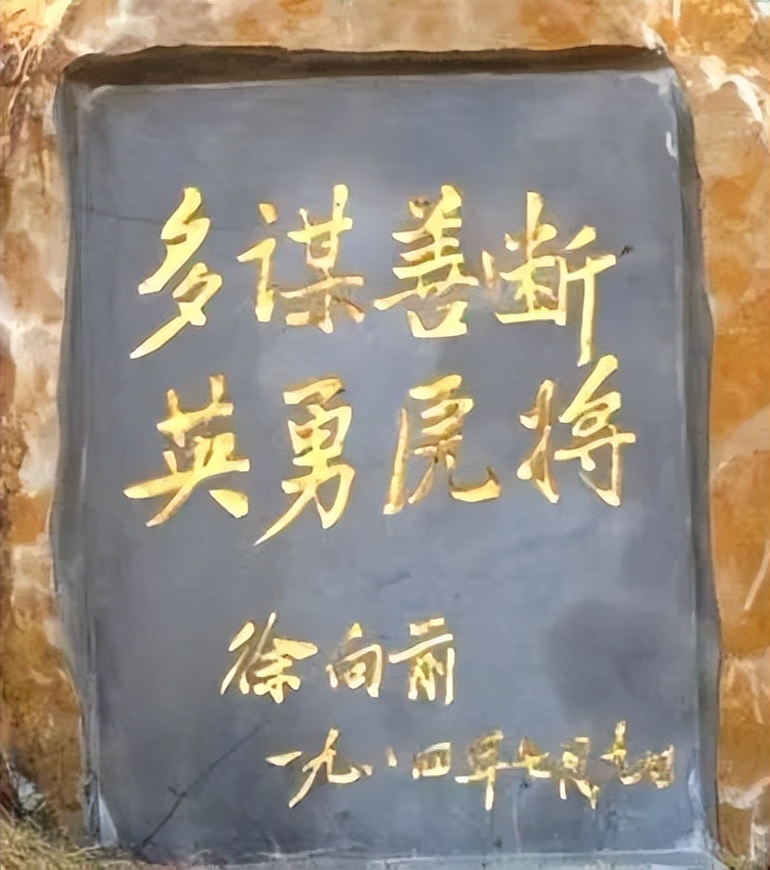 多谋善断
英勇虎将
徐向前
一九八四年七月九日